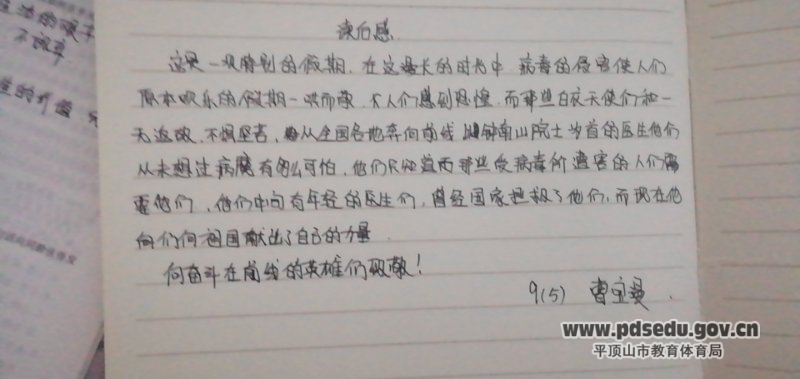 读后感
这是一段特别的假期，在这漫长的时光中 病毒的侵害使人们
原本欢乐的假期一哄而散，令人们感到恐惶，而那些白衣天使们和一
无返顾，不惧坚苦，从全国各地奔向前线 以钟南山院士为首的医生他们
从未想过病魔有多么可怕，他们只知道而那些受病毒所遭害的人们需
要他们，他们中间有年轻的医生们，曾经国家拯救了他们，而现在他
们向祖国献出了自己的力量
向奋斗在前线的英雄们致敬！
9(5) 曹
不
的价值
www.pdsedu.gov.cn
平顶山市教育体育局